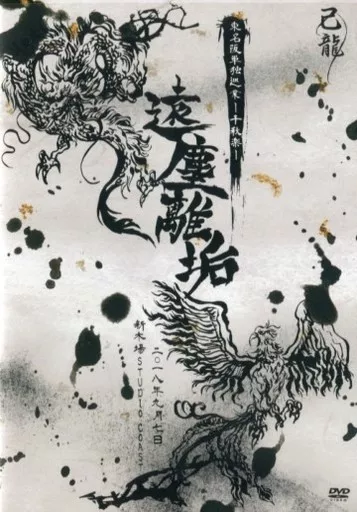 己龍
東名阪単独巡業-千秋楽-
遠塵離垢
二〇一八年九月七日
新木場STUDIO COAST
DVD
VIDEO